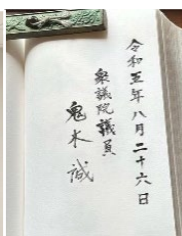 令和五年八月二十六日
衆議院議員
鬼木誠